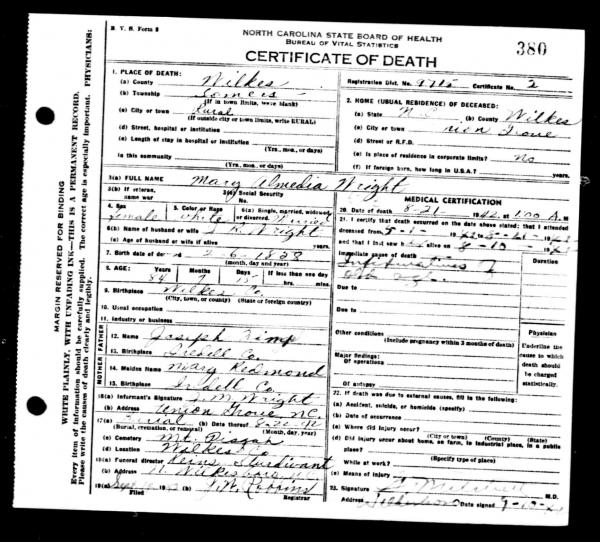 B. V. S. Form 8
NORTH CAROLINA STATE BOARD OF HEALTH
BUREAU OF VITAL STATISTICS
CERTIFICATE OF DEATH
380
1. PLACE OF DEATH:
(a) County Wilkes
(b) Township Somers
(If in town limits, write blank)
(c) City or town Rural
(If outside city or town limits, write RURAL)
(d) Street, hospital or institution
(e) Length of stay in hospital or institution
(Yrs., mon., or days)
In this community
(Yrs., mon., or days)
Registration Dist. No. Certificate No. 2
2. HOME (USUAL RESIDENCE) OF DECEASED:
(a) State N.C. (b) County Wilkes
(c) City or town Union Grove
(d) Street or R.F.D.
(e) Is place of residence in corporate limits? No
(f) If foreign born, how long in U.S.A.? years.
3(a) FULL NAME Mary Almedia Wright
3(b) If veteran, name war
3(c) Social Security No.
4. Sex female
5. Color or Race white
6(a) Single, married, widowed or divorced
6(b) Name of husband or wife Wright
6(c) Age of husband or wife if alive
7. Birth date of 2-6-1858
(month, day and year)
8. AGE: Years Months Days If less than one day
84 hrs. min.
9. Birthplace Wilkes Co.
(City, town, or county) (State or foreign country)
10. Usual occupation
11. Industry or business
FATHER
12. Name Joseph
13. Birthplace Iredell Co.
MOTHER
14. Maiden Name Mary Redmond
15. Birthplace Iredell Co.
16(a) Informant's Signature J. M. Wright
(b) Address Union Grove N.C.
17(a) Burial (b) Date thereof
(Burial, cremation, or removal) (Month, day, year)
(c) Cemetery Mt. Pisgah
(d) Location Wilkes Co.
18(a) Funeral director Reins Sturdivant
(b) Address N. Wilkesboro
19(a) Sept 19(b)
Filed Registrar
MEDICAL CERTIFICATION
20. Date of death 8-21 1942 at 1:00 A M
21. I certify that death occurred on the above stated; that I attended
deceased from
and that I saw h alive on 8-10
Immediate cause of death
Duration
Due to
Due to
Other conditions
(Include pregnancy within 3 months of death)
Major findings:
Of operations
Of autopsy
Physician
Underline the cause to which death should be charged statistically.
22. If death was due to external causes, fill in the following:
(a) Accident, suicide, or homicide (specify)
(b) Date of occurrence
(c) Where did injury occur?
(City or town) (County) (State)
(d) Did injury occur about home, on farm, in industrial place, in a public place?
While at work?
(e) Means of injury
23. Signature M.D.
Address Date signed
MARGIN RESERVED FOR BINDING
WRITE PLAINLY, WITH UNFADING INK—THIS IS A PERMANENT RECORD.
Every item of information should be carefully supplied. The correct age is especially important. PHYSICIANS:
Please write the causes of death clearly and legibly.